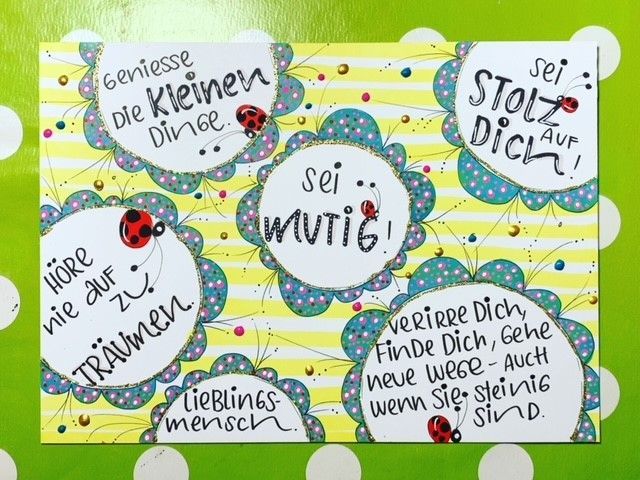 GENIESSE
DIE KLEINEN
DINGE.
SEI
STOLZ
AUF
DICH!
SEI
MUTIG!
HÖRE
NIE AUF
ZU
TRÄUMEN.
LIEBLINGS-
MENSCH.
VERIRRE DICH,
FINDE DICH, GEHE
NEUE WEGE - AUCH
WENN SIE STEINIG
SIND.